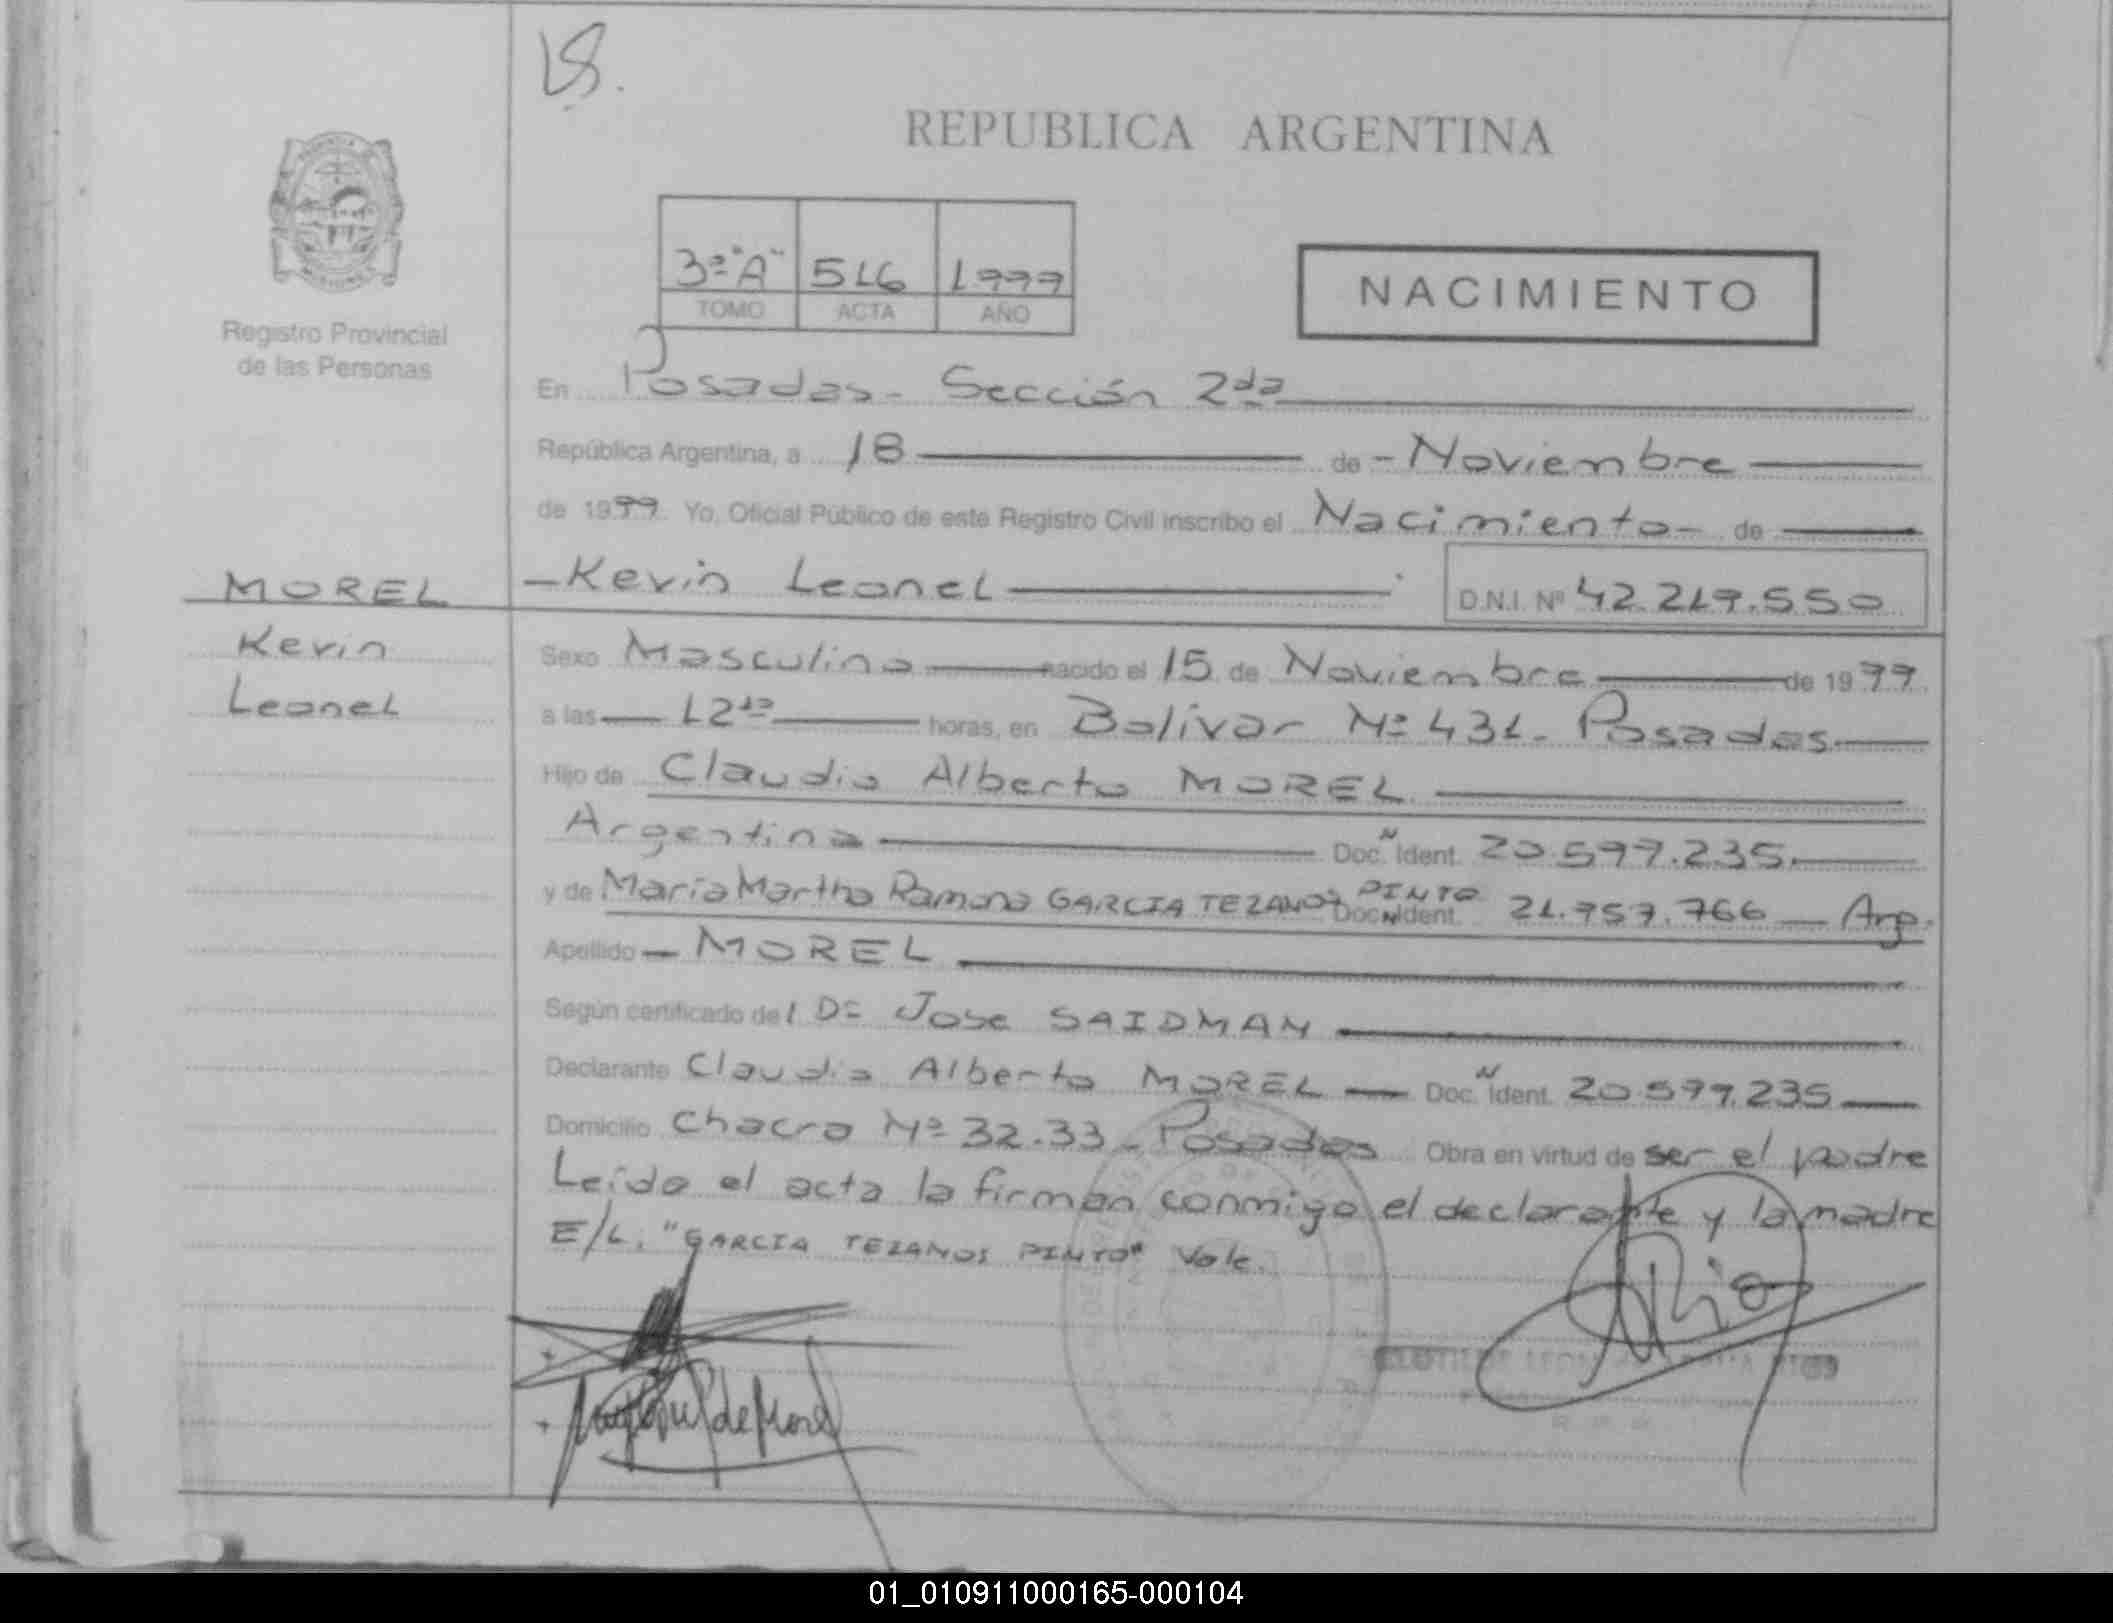 REPUBLICA ARGENTINA
3ª "A" 516 1999
TOMO ACTA AÑO
NACIMIENTO
Registro Provincial
de las Personas
En Posadas - Sección 2da
República Argentina, a 18 de - Noviembre
de 1999. Yo, Oficial Público de este Registro Civil inscribo el Nacimiento - de
- Kevin Leonel
D.N.I. Nº 42.219.550
MOREL
Kevin
Leonel
Sexo Masculino nacido el 15 de Noviembre de 1999
a las 12 horas, en Bolivar Nº 431 - Posadas
Hijo de Claudio Alberto MOREL
Argentina Doc. N Ident. 20.597.235.
y de Maria Martha Ramona GARCIA TEZANOS PINTO Doc. N Ident. 21.957.766 - Arg.
Apellido - MOREL
Según certificado del Dr Jose SAIDMAN
Declarante Claudio Alberto MOREL - Doc. N Ident. 20.597.235
Domicilio Chacra Nº 32.33 - Posadas Obra en virtud de ser el padre
Leída el acta la firman conmigo el declarante y la madre
E/L. "GARCIA TEZANOS PINTO" Vale.
01_010911000165-000104